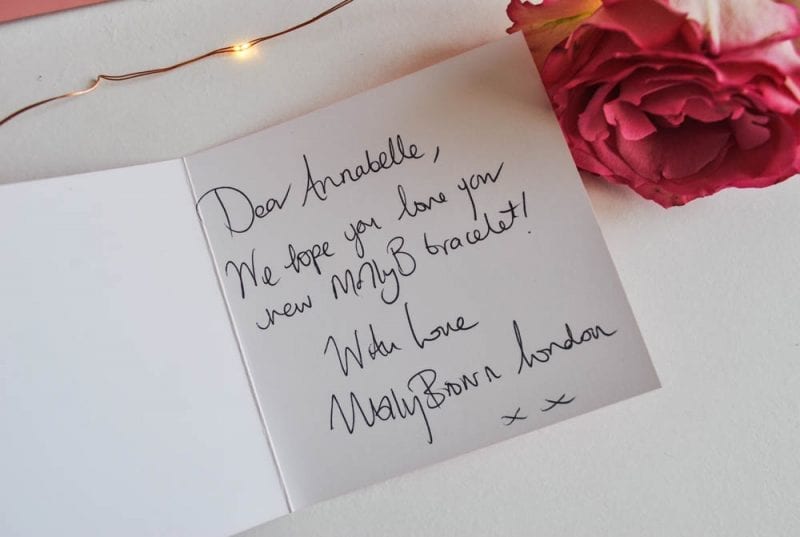 Dear Annabelle,
We hope you love your
new MollyB bracelet!
With love
MollyBrown London
x x